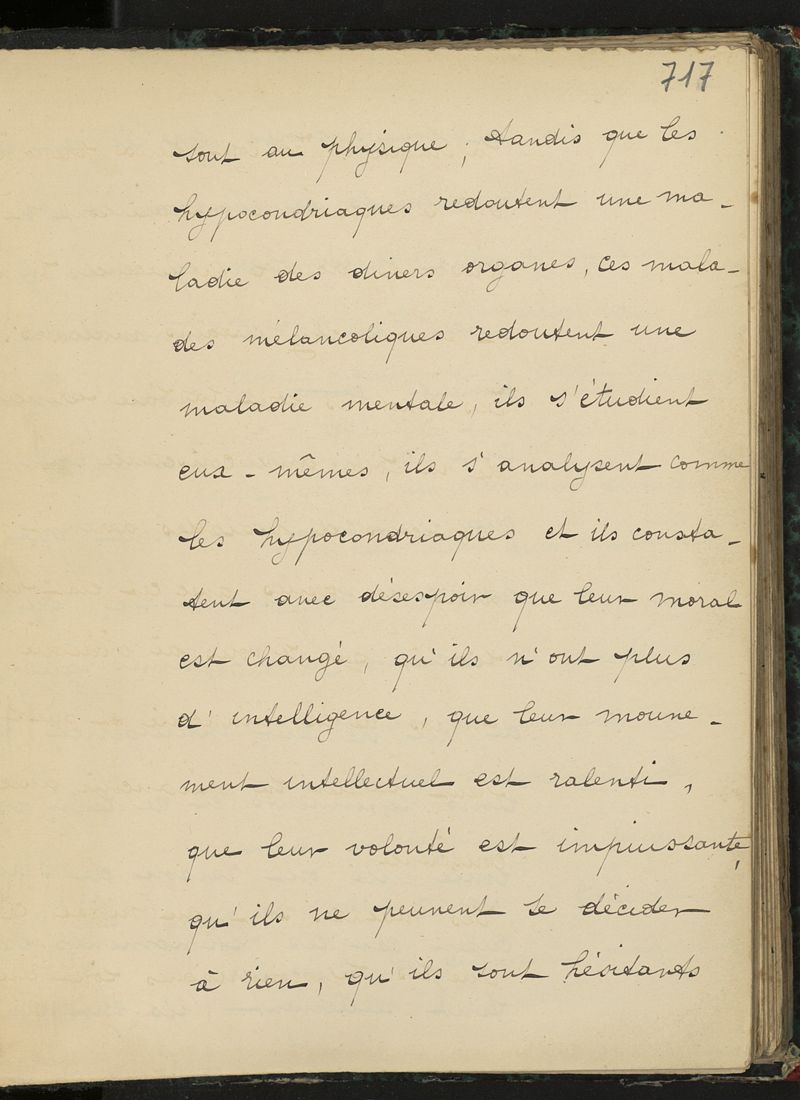 717
sont au physique ; tandis que les
hypocondriaques redoutent une ma-
ladie des divers organes, ces mala-
des mélancoliques redoutent une
maladie mentale, ils s'étudient
eux-mêmes, ils s'analysent comme
les hypocondriaques et ils consta-
tent avec désespoir que leur moral
est changé, qu'ils n'ont plus
d'intelligence, que leur mouve-
ment intellectuel est ralenti,
que leur volonté est impuissante,
qu'ils ne peuvent se décider
à rien, qu'ils sont hésitants